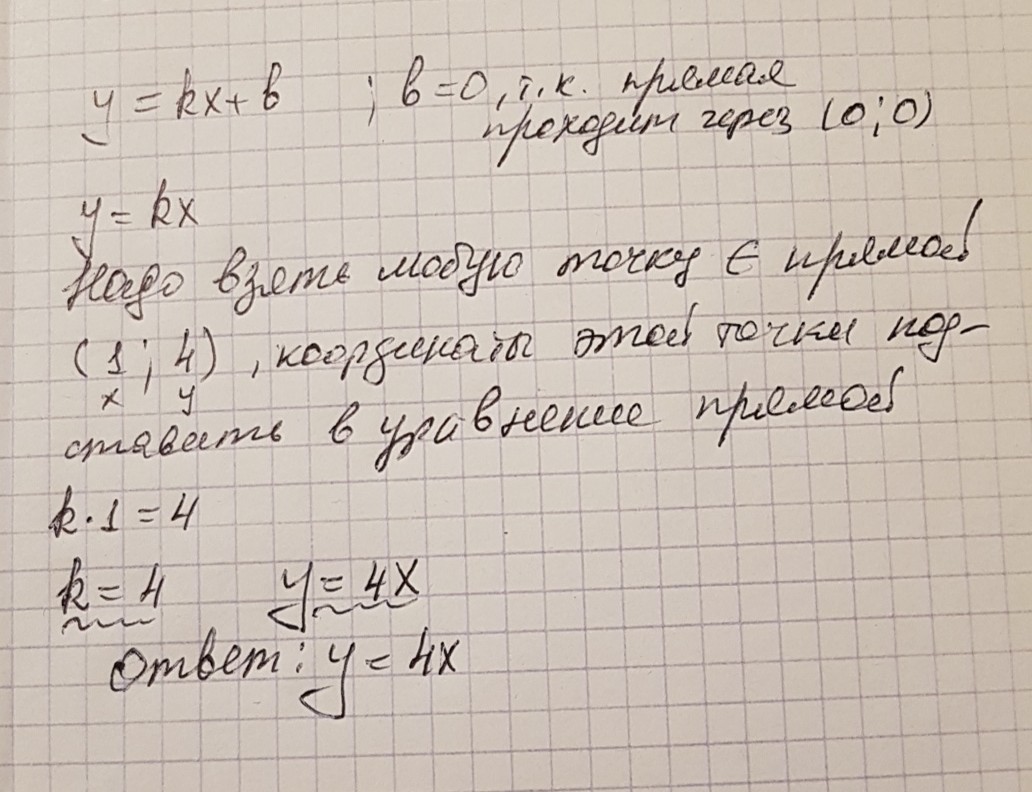 y = kx + b ; b = 0, т.к. прямая
проходит через (0; 0)
y = kx
Надо взять любую точку ∈ прямой
(1; 4), координаты этой точки под-
x y
ставить в уравнение прямой
k · 1 = 4
k = 4 y = 4x
Ответ: y = 4x